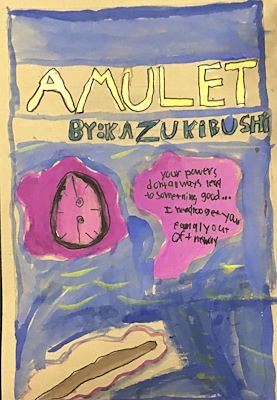 AMULET
BY:KAZUKIBUSHI
your powers
dont always lead
to something good...
I need to get your
family out
of